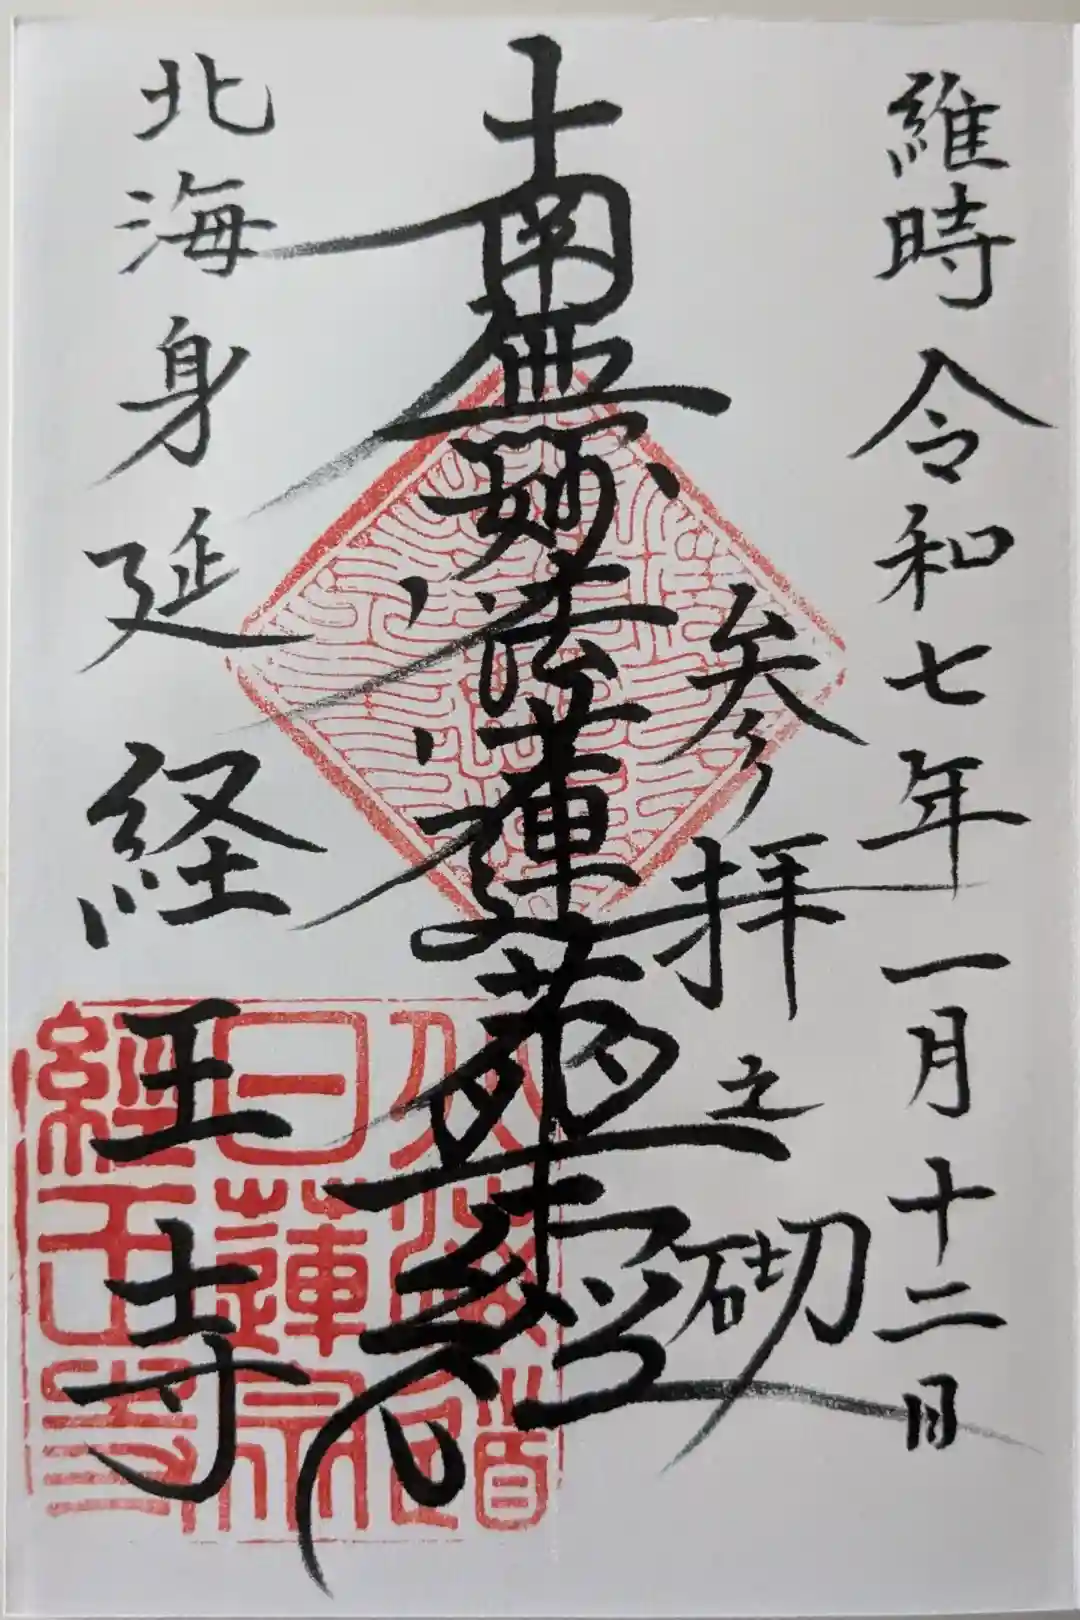 維時 令和七年一月十二日
参拝之砌
南無妙法蓮華経
北海身延 経王寺
日蓮宗
經王寺